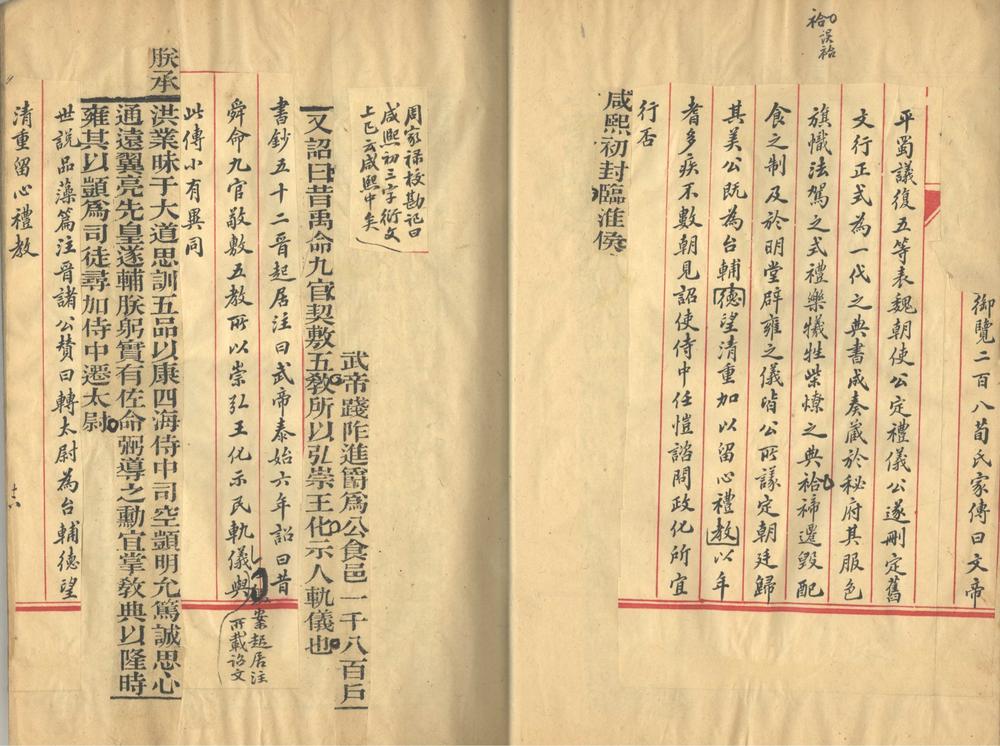 祫誤祫
御覽二百八荀氏家傳曰文帝
平蜀議復五等表魏朝使公定禮儀公遂刪定舊
文行正式為一代之典書成奏藏於秘府其服色
旗幟法駕之式禮樂犧牲柴燎之典祫禘遷毀配
食之制及於明堂辟雍之儀皆公所議定朝廷歸
其美公既為台輔德望清重加以留心禮教以年
耆多疾不數朝見詔使侍中任愷諮問政化所宜
行否
咸熙初封臨淮侯
周家祿校勘記曰
咸熙初三字衍文
上已云咸熙中矣
武帝踐阼進爵爲公食邑一千八百戶
又詔曰昔禹命九官契敷五敎所以弘崇王化示人軌儀也
書鈔五十二晉起居注曰武帝泰始六年詔曰昔
舜命九官敬敷五教所以崇弘王化示民軌儀與
案起居注
所載詔文
此傳小有異同
朕承
洪業昧于大道思訓五品以康四海侍中司空顗明允篤誠思心
通遠翼亮先皇遂輔朕躬實有佐命弼導之勳宜掌敎典以隆時
雍其以顗爲司徒尋加侍中遷太尉
世說品藻篇注晉諸公贊曰轉太尉為台輔德望
清重留心禮教